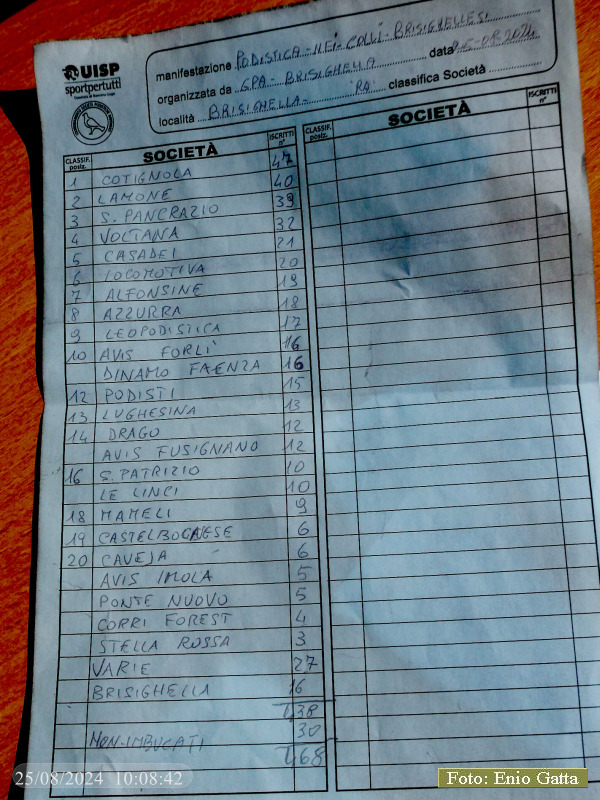 UISP
sportpertutti
manifestazione PODISTICA-NEI-COLLI-BRISIGHELLESI
organizzata da GPA-BRISIGHELLA data 25-08-2024
località BRISIGHELLA RA classifica Società
CLASSIF. posiz. SOCIETÀ ISCRITTI n° CLASSIF. posiz. SOCIETÀ ISCRITTI n°
1 COTIGNOLA 47
2 LAMONE 40
3 S. PANCRAZIO 39
4 VOLTANA 32
5 CASADEI 21
6 LOCOMOTIVA 20
7 ALFONSINE 19
8 AZZURRA 18
9 LEOPODISTICA 17
10 AVIS FORLÌ 16
DINAMO FAENZA 16
12 PODISTI 15
13 LUGHESINA 13
14 DRAGO 12
AVIS FUSIGNANO 12
16 S. PATRIZIO 10
LE LINCI 10
18 MAMELI 9
19 CASTELBOGNESE 6
20 CAVEJA 6
AVIS IMOLA 5
PONTE NUOVO 5
CORRI FOREST 4
STELLA ROSSA 3
VARIE 27
BRISIGHELLA 16
438
NON-IMBUCATI 30
468
25/08/2024 10:08:42
Foto: Enio Gatta